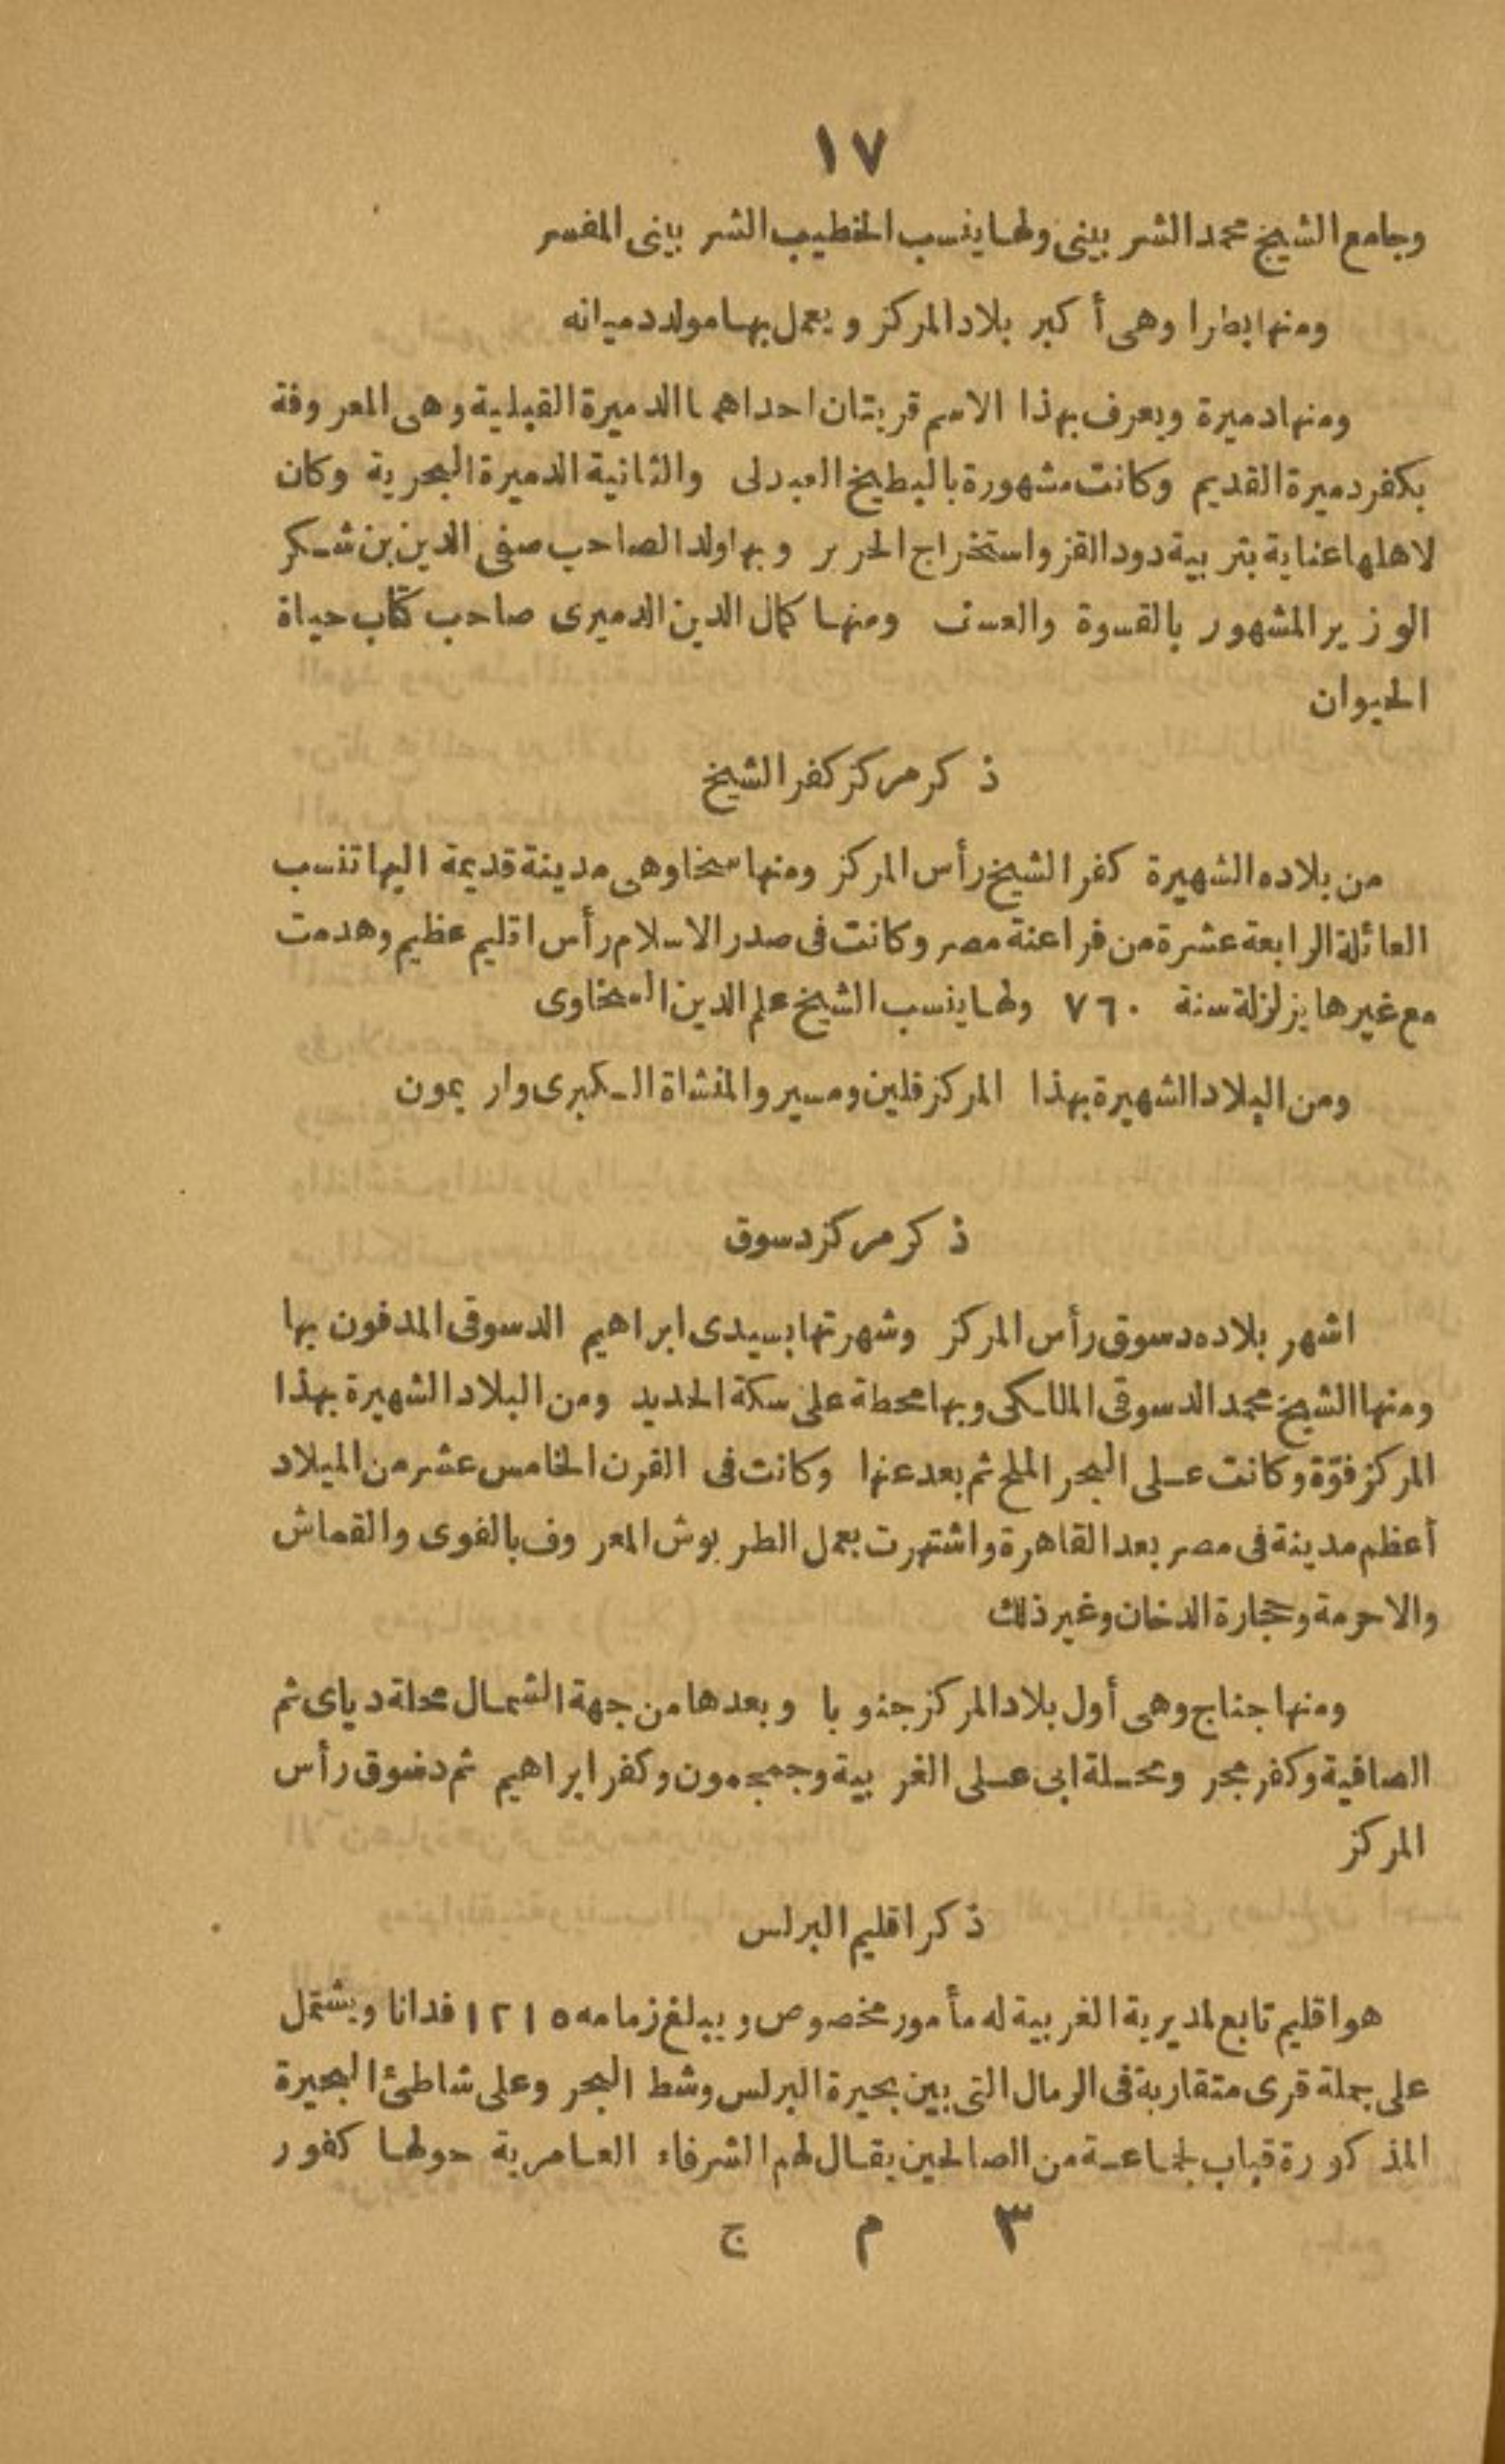 ١٧
وجامع الشيخ محمد الشربيني ولها ينسب الخطيب الشربينى المفسر
ومنها بطرا وهى أكبر بلاد المركز ويعمل بها مولد دميانه
ومنها دميرة ويعرف بهذا الاسم قريتان احداهما الدميرة القبلية وهى المعروفة
بكفر دميرة القديم وكانت مشهورة بالبطيخ العبدلى والثانية الدميرة البحرية وكان
لاهلها عناية بتربية دود القز واستخراج الحرير وبها ولد الصاحب صفى الدين بن شكر
الوزير المشهور بالقسوة والعسف ومنها كمال الدين الدميرى صاحب كتاب حياة
الحيوان
ذكر مركز كفر الشيخ
من بلاده الشهيرة كفر الشيخ رأس المركز ومنها سخا وهى مدينة قديمة اليها تنسب
العائلة الرابعة عشرة من فراعنة مصر وكانت فى صدر الاسلام رأس اقليم عظيم وهدمت
مع غيرها بزلزلة سنة ٧٦٠ ولها ينسب الشيخ علم الدين السخاوى
ومن البلاد الشهيرة بهذا المركز قلين ومسير والمنشاة الكبرى واريمون
ذكر مركز دسوق
اشهر بلاده دسوق رأس المركز وشهرتها بسيدى ابراهيم الدسوقى المدفون بها
ومنها الشيخ محمد الدسوقى المالكى وبها محطة على سكة الحديد ومن البلاد الشهيرة بهذا
المركز فوّة وكانت على البحر الملح ثم بعد عنها وكانت فى القرن الخامس عشر من الميلاد
أعظم مدينة فى مصر بعد القاهرة واشتهرت بعمل الطربوش المعروف بالفوى والقماش
والاحرمة وحجارة الدخان وغير ذلك
ومنها جناج وهى أول بلاد المركز جنوبا وبعدها من جهة الشمال محلة دياى ثم
الصافية وكفر مجر ومحلة ابى على الغربية وجمجمون وكفر ابراهيم ثم دسوق رأس
المركز
ذكر اقليم البرلس
هو اقليم تابع لمديرية الغربية له مأمور مخصوص ويبلغ زمامه ١٢١٥ فدانا ويشتمل
على جملة قرى متقاربة فى الرمال التى بين بحيرة البرلس وشط البحر وعلى شاطئ البحيرة
المذكورة قباب لجماعة من الصالحين يقال لهم الشرفاء العامرية حولها كفور
٣ م ج